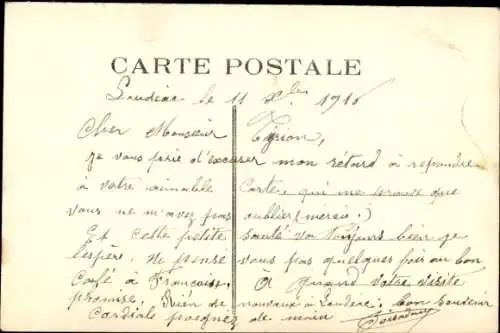 CARTE POSTALE
Loudéac le 11 Xbre 1916
Cher Monsieur Tyrion,
je vous prie d'excuser mon rétard à repondre
à votre aimable Carte, qui me prouve que
vous ne m'avez pas oublier (merci!)
Et cette petite santé va toujours bien je
l'espère. Ne pensé vous pas quelques fois au bon
Café à Françoise, A quand votre visite
promise. Rien de nouveaux à Loudéac. bon Souvenir
Cordiale poignez de main